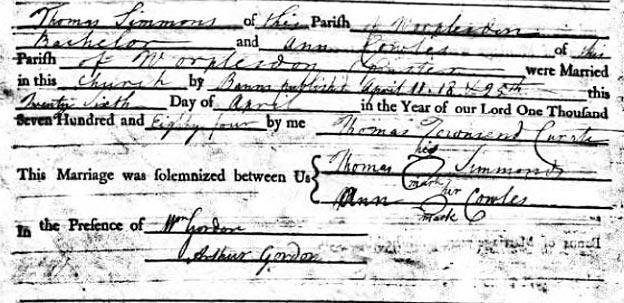 Thomas Simmons of this Parish of Worplesdon
Bachelor and Ann Cowles of this
Parish of Worplesdon Spinster were Married
in this Church by Banns publishd April 11. 18 & 25th this
Twenty Sixth Day of April in the Year of our Lord One Thousand
Seven Hundred and Eighty four by me Thomas Townsend Curate
This Marriage was solemnized between Us { Thomas his mark Simmonds
Ann her mark Cowles
In the Presence of Wm Gordon
Arthur Gordon